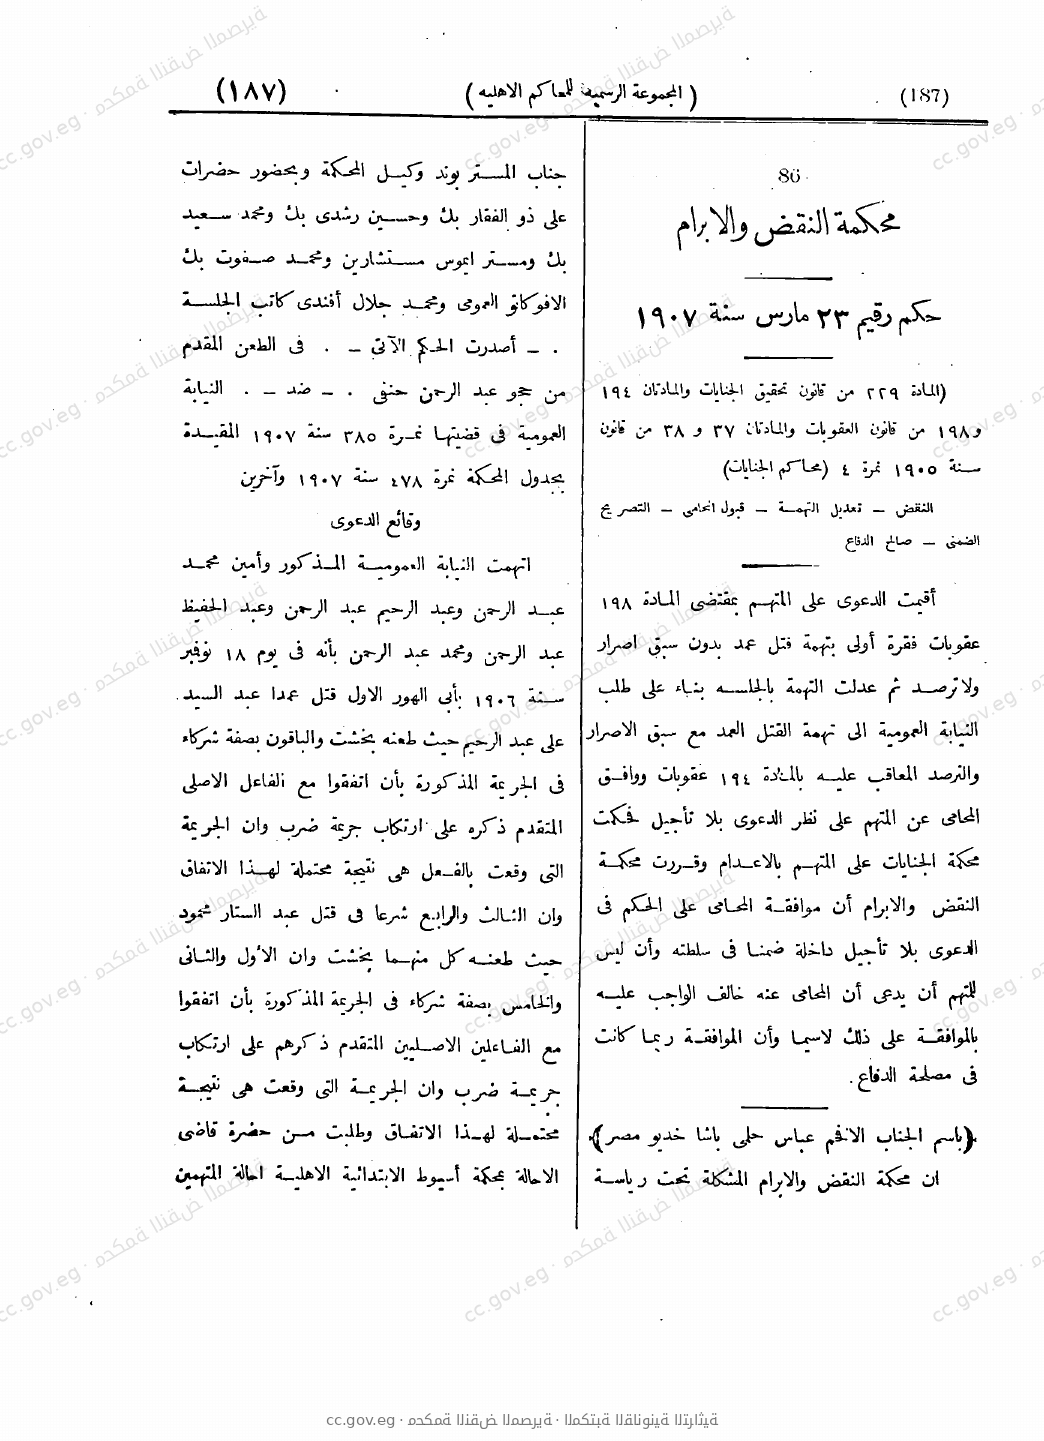 (187)
( المجموعة الرسمية للمحاكم الاهليه )
(١٨٧)
86
محكمة النقض والابرام
حكم رقيم ٢٣ مارس سنة ١٩٠٧
(المادة ٢٢٩ من قانون تحقيق الجنايات والمادتان ١٩٤
و١٩٨ من قانون العقوبات والمادتان ٣٧ و ٣٨ من قانون
سنة ١٩٠٥ نمرة ٤ (محاكم الجنايات)
النقض – تعديل التهمة – قبول المحامى – التصريح
الضمنى – صالح الدفاع
أقيمت الدعوى على المتهم بمقتضى المادة ١٩٨
عقوبات فقرة أولى بتهمة قتل عمد بدون سبق اصرار
ولا ترصد ثم عدلت التهمة بالجلسه بناء على طلب
النيابة العمومية الى تهمة القتل العمد مع سبق الاصرار
والترصد المعاقب عليه بالمادة ١٩٤ عقوبات ووافق
المحامى عن المتهم على نظر الدعوى بلا تأجيل فحكمت
محكمة الجنايات على المتهم بالاعدام وقررت محكمة
النقض والابرام أن موافقة المحامى على الحكم فى
الدعوى بلا تأجيل داخلة ضمنا فى سلطته وأن ليس
للمتهم أن يدعى أن المحامى عنه خالف الواجب عليه
بالموافقة على ذلك لاسيما وأن الموافقة ربما كانت
فى مصلحة الدفاع.
(باسم الجناب الافخم عباس حلمى باشا خديو مصر)
ان محكمة النقض والابرام المشكلة تحت رياسة
جناب المستر بوند وكيل المحكمة وبحضور حضرات
على ذو الفقار بك وحسين رشدى بك ومحمد سعيد
بك ومستر ايموس مستشارين ومحمد صفوت بك
الافوكاتو العمومى ومحمد جلال أفندى كاتب الجلسة
. – أصدرت الحكم الآتى – . فى الطعن المقدم
من حجو عبد الرحمن حنفى . – ضد – . النيابة
العمومية فى قضيتها نمرة ٣٨٥ سنة ١٩٠٧ المقيدة
بجدول المحكمة نمرة ٤٧٨ سنة ١٩٠٧ وآخرين
وقائع الدعوى
اتهمت النيابة العمومية المذكور وأمين محمد
عبد الرحمن وعبد الرحيم عبد الرحمن وعبد الحفيظ
عبد الرحمن ومحمد عبد الرحمن بأنه فى يوم ١٨ نوفمبر
سنة ١٩٠٦ بأبى الهور الاول قتل عمدا عبد السيد
على عبد الرحيم حيث طعنه بخشت والباقون بصفة شركاء
فى الجريمة المذكورة بأن اتفقوا مع الفاعل الاصلى
المتقدم ذكره على ارتكاب جريمة ضرب وان الجريمة
التى وقعت بالفعل هى نتيجة محتملة لهذا الاتفاق
وان الثالث والرابع شرعا فى قتل عبد الستار محمود
حيث طعنه كل منهما بخشت وان الأول والثانى
والخامس بصفة شركاء فى الجريمة المذكورة بأن اتفقوا
مع الفاعلين الاصليين المتقدم ذكرهم على ارتكاب
جريمة ضرب وان الجريمة التى وقعت هى نتيجة
محتملة لهذا الاتفاق وطلبت من حضرة قاضى
الاحالة بمحكمة أسيوط الابتدائية الاهلية احالة المتهمين
cc.gov.eg · محكمة النقض المصرية · المكتبة القانونية التراثية